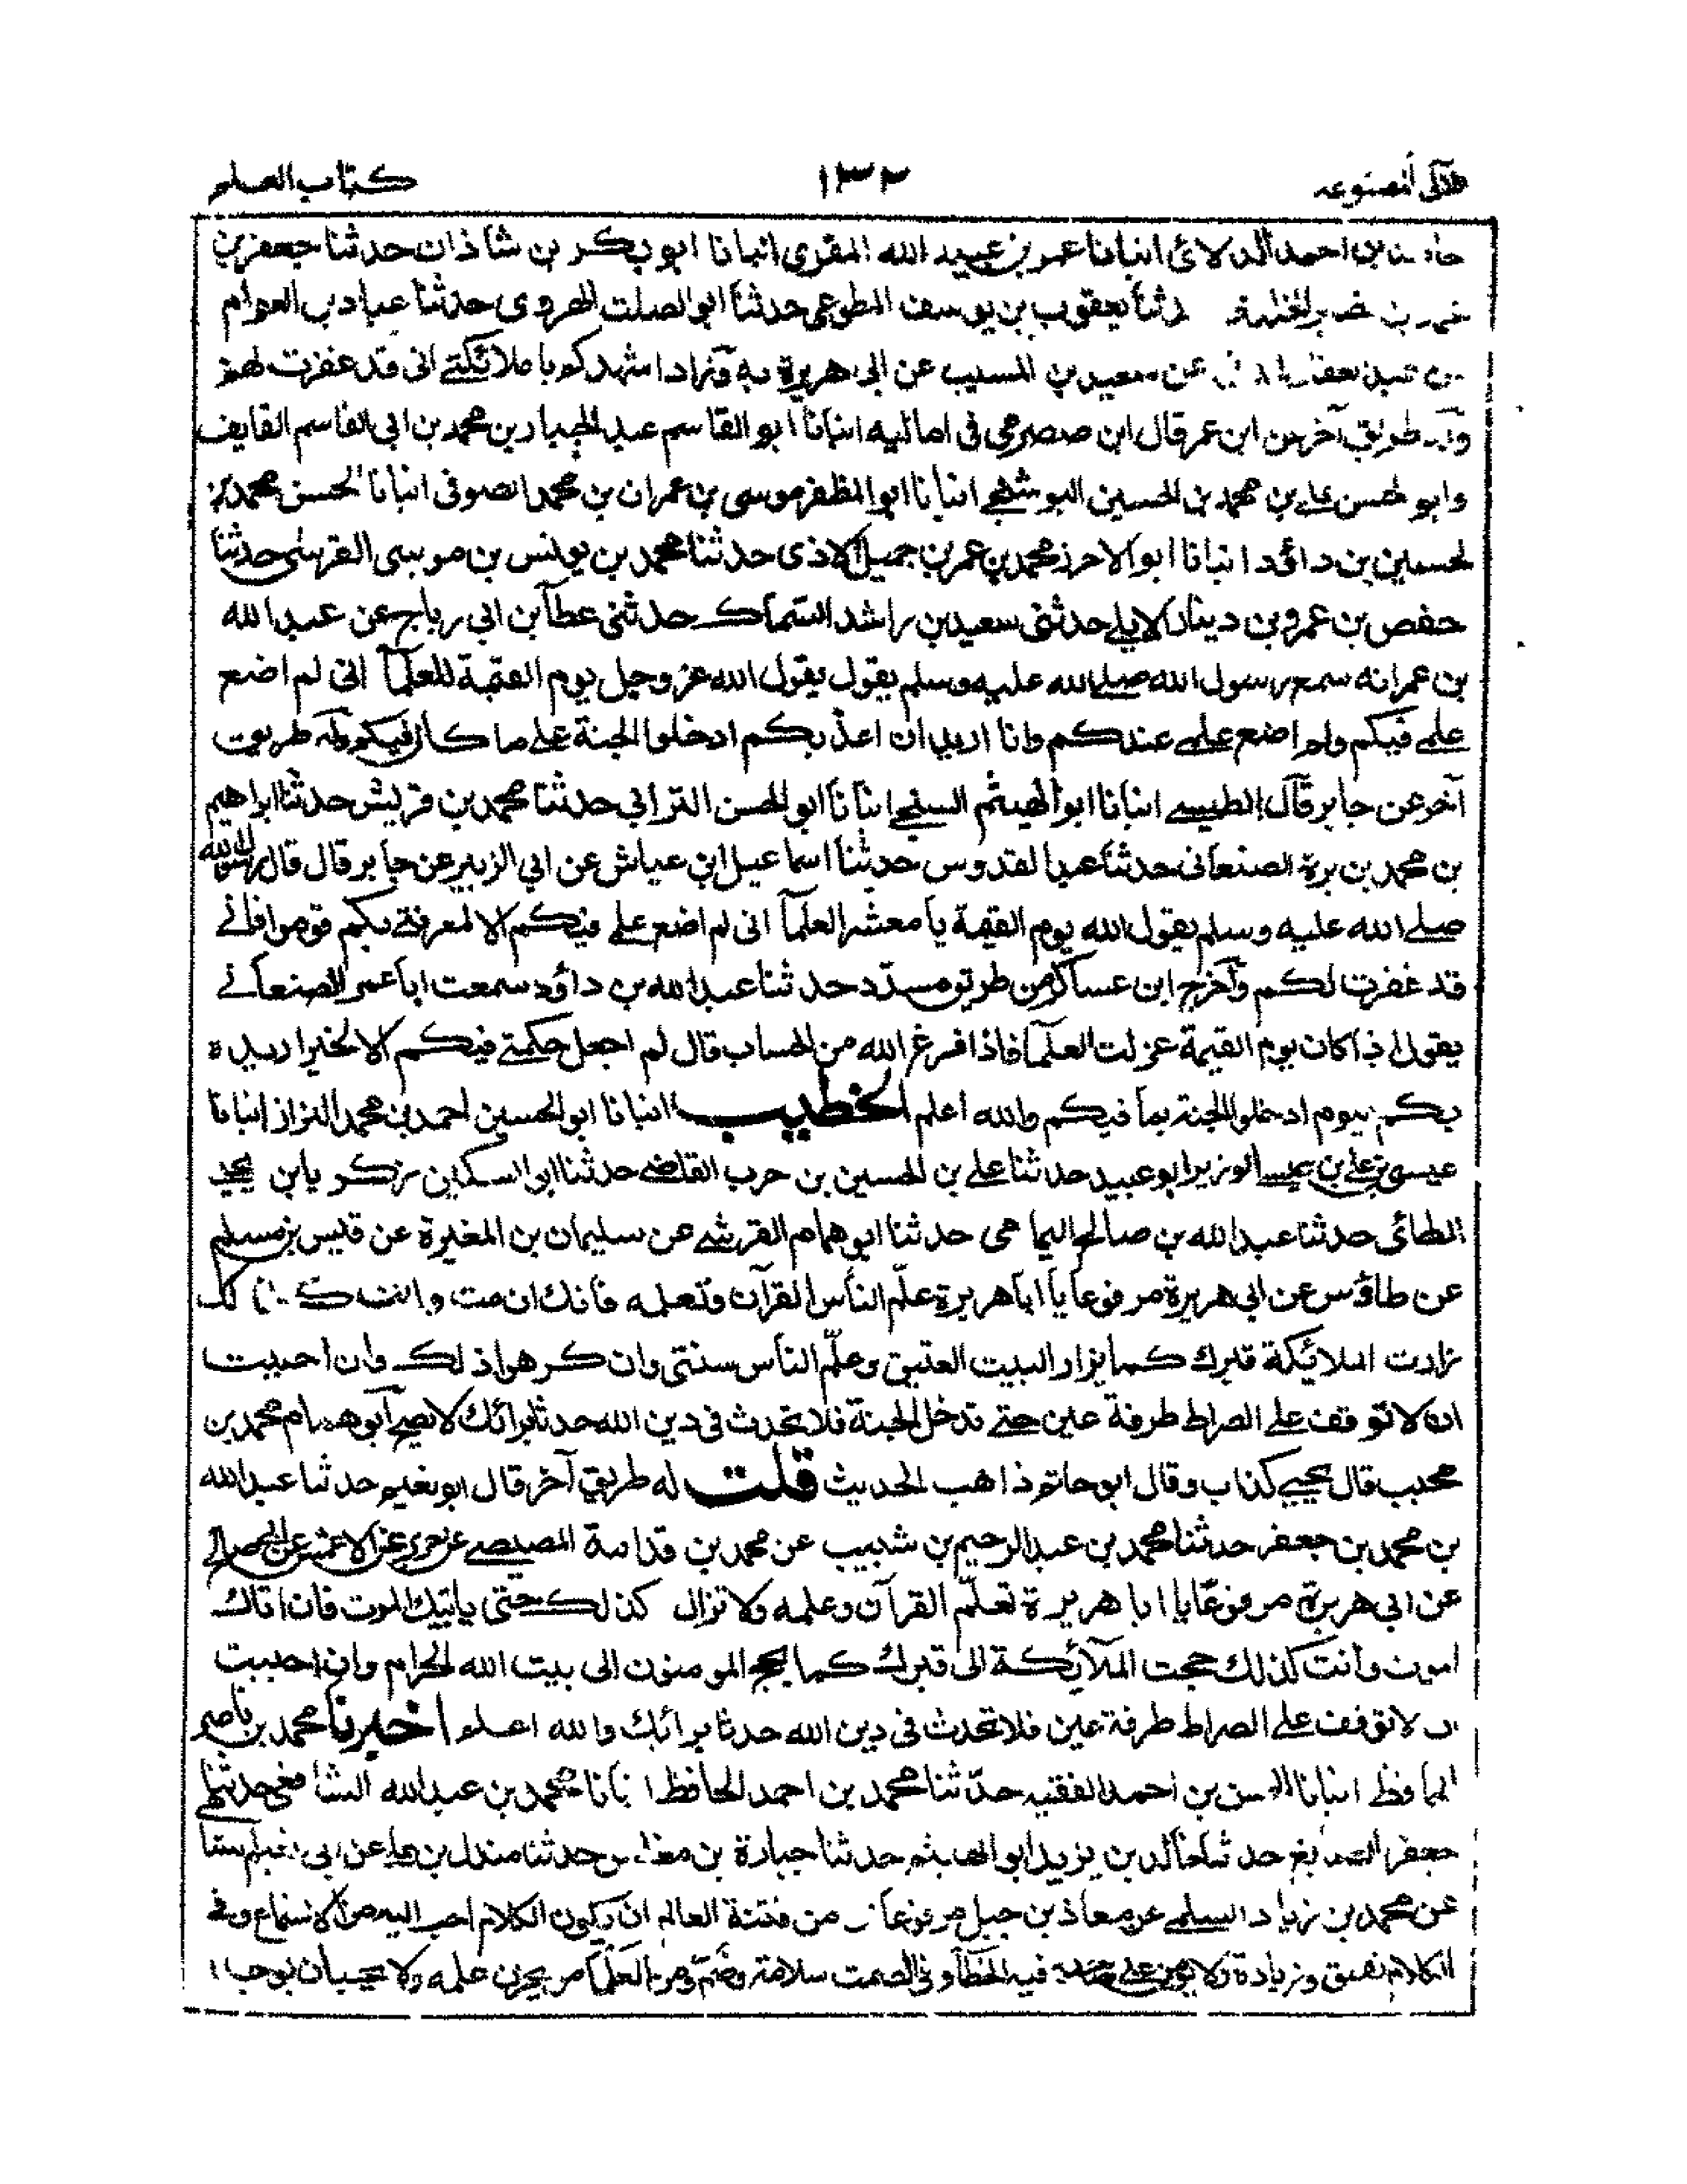 كتاب العلم ١٣٢ اللآلى المصنوعه
بن احمد الدلائ انبانا عمر بن عبيد الله المقرى انبانا ابو بكر بن شاذان حدثنا جعفر بن
بن يعقوب بن يوسف المطوعى حدثنا ابو الصلت الهروى حدثنا عباد بن العوام
بن عن سعيد بن المسيب عن ابى هريرة به وزاد اشهدكم يا ملائكتے انى قد غفرت لهم
وله طريق آخر عن ابن عمر قال ابن صصرى فى اماليه انبانا ابو القاسم عبد الجبار بن محمد بن ابى القاسم القايف
وابو الحسن على بن محمد بن الحسين البوشنجے انبانا ابو المظفر موسى بن عمران بن محمد الصوفى انبانا الحسن محمد بن
الحسين بن داؤد انبانا ابو الاحرز محمد بن عمر بن جميل الاذى حدثنا محمد بن يونس بن موسى القرشى حدثنا
حفص بن عمرو بن دينار الايلے حدثنى سعيد بن راشد السماك حدثنى عطآ بن ابى رباح عن عبد الله
بن عمر انه سمع رسول الله صلے الله عليه وسلم يقول يقول الله عز وجل يوم القيمة للعلمآ انى لم اضع
علمے فيكم ولم اضع علمے عندكم وانا اريد ان اعذبكم ادخلوا الجنة على ما كان فيكم وله طريق
آخر عن جابر قال الطيسے انبانا ابو الهيثم السنجے انبانا ابو الحسن الترابى حدثنا محمد بن قريش حدثنا ابراهيم
بن محمد بن برة الصنعانى حدثنا عبد القدوس حدثنا اسماعيل ابن عياش عن ابى الزبير عن جابر قال قال رسول الله
صلے الله عليه وسلم يقول الله يوم القيمة يا معشر العلمآ انى لم اضع علمى فيكم الا لمعرفتے بكم قوموا فانے
قد غفرت لكم وآخرج ابن عساكر من طريق مسدّد حدثنا عبد الله بن داؤد سمعت ابا عمر الصنعانے
يقول اذا كان يوم القيمة عزلت العلمآ فاذا فرغ الله من الحساب قال لم اجعل حكمتے فيكم الا لخير اريده
بكم يوم ادخلوا الجنة بما فيكم والله اعلم الخطيب انبانا ابو الحسين احمد بن محمد البزاز انبانا
عيسى بن على بن عيسے الوزير ابو عبيد حدثنا على بن الحسين بن حرب القاضے حدثنا ابو السكين زكريا بن يحيى
الطائى حدثنا عبد الله بن صالح اليمامى حدثنا ابو همام القرشے عن سليمان بن المغيرة عن قيس بن مسلم
عن طاؤس عن ابى هريرة مرفوعا يا ابا هريرة علّم الناس القرآن وتعلمه فانك ان مت وانت
زارت الملائكة قبرك كما يزار البيت العتيق وعلّم الناس سنتى وان كرهوا ذلك وان احببت
ان لا توقف على الصراط طرفة عين حتے تدخل الجنة فلا تحدث فى دين الله حدثا برائك لا يصح آبو همام محمد بن
محبب قال يحيے كذاب وقال ابو حاتم ذاهب الحديث قلت له طريق آخر قال ابو نعيم حدثنا عبد الله
بن محمد بن جعفر حدثنا محمد بن عبد الرحيم بن شبيب عن محمد بن قدامة المصيصے عن جرير عن الاعمش عن ابى صالح
عن ابى هريرة مرفوعًا يا ابا هريرة تعلّم القرآن وعلمه ولا تزال كذلك حتى ياتيك الموت فان اتاك
الموت وانت كذلك حجت الملآئكة الى قبرك كما يحج المومنون الى بيت الله الحرام وان احببت
ان لا توقف على الصراط طرفة عين فلا تحدث فى دين الله حدثا برائك والله اعلم اخبرنا محمد بن ناصر
الحافظ انبانا الحسن بن احمد الفقيه حدّثنا محمد بن احمد الحافظ انبانا محمد بن عبد الله الشافعى حدثنى
جعفر الصايغ حدثنا خالد بن يزيد ابو الهيثم حدثنا جبارة بن مغلس حدثنا مندل بن على عن ابى نعيم
عن محمد بن زياد السلمے عن معاذ بن جبل مرفوعا من فتنة العالم ان يكون الكلام احب اليه من الاستماع وفى
الكلام تنميق وزيادة ولا يومن على فيه الخطآ وفى الصمت سلامة ومن العلمآ من يخزن علمه ولا يحب ان يوجد